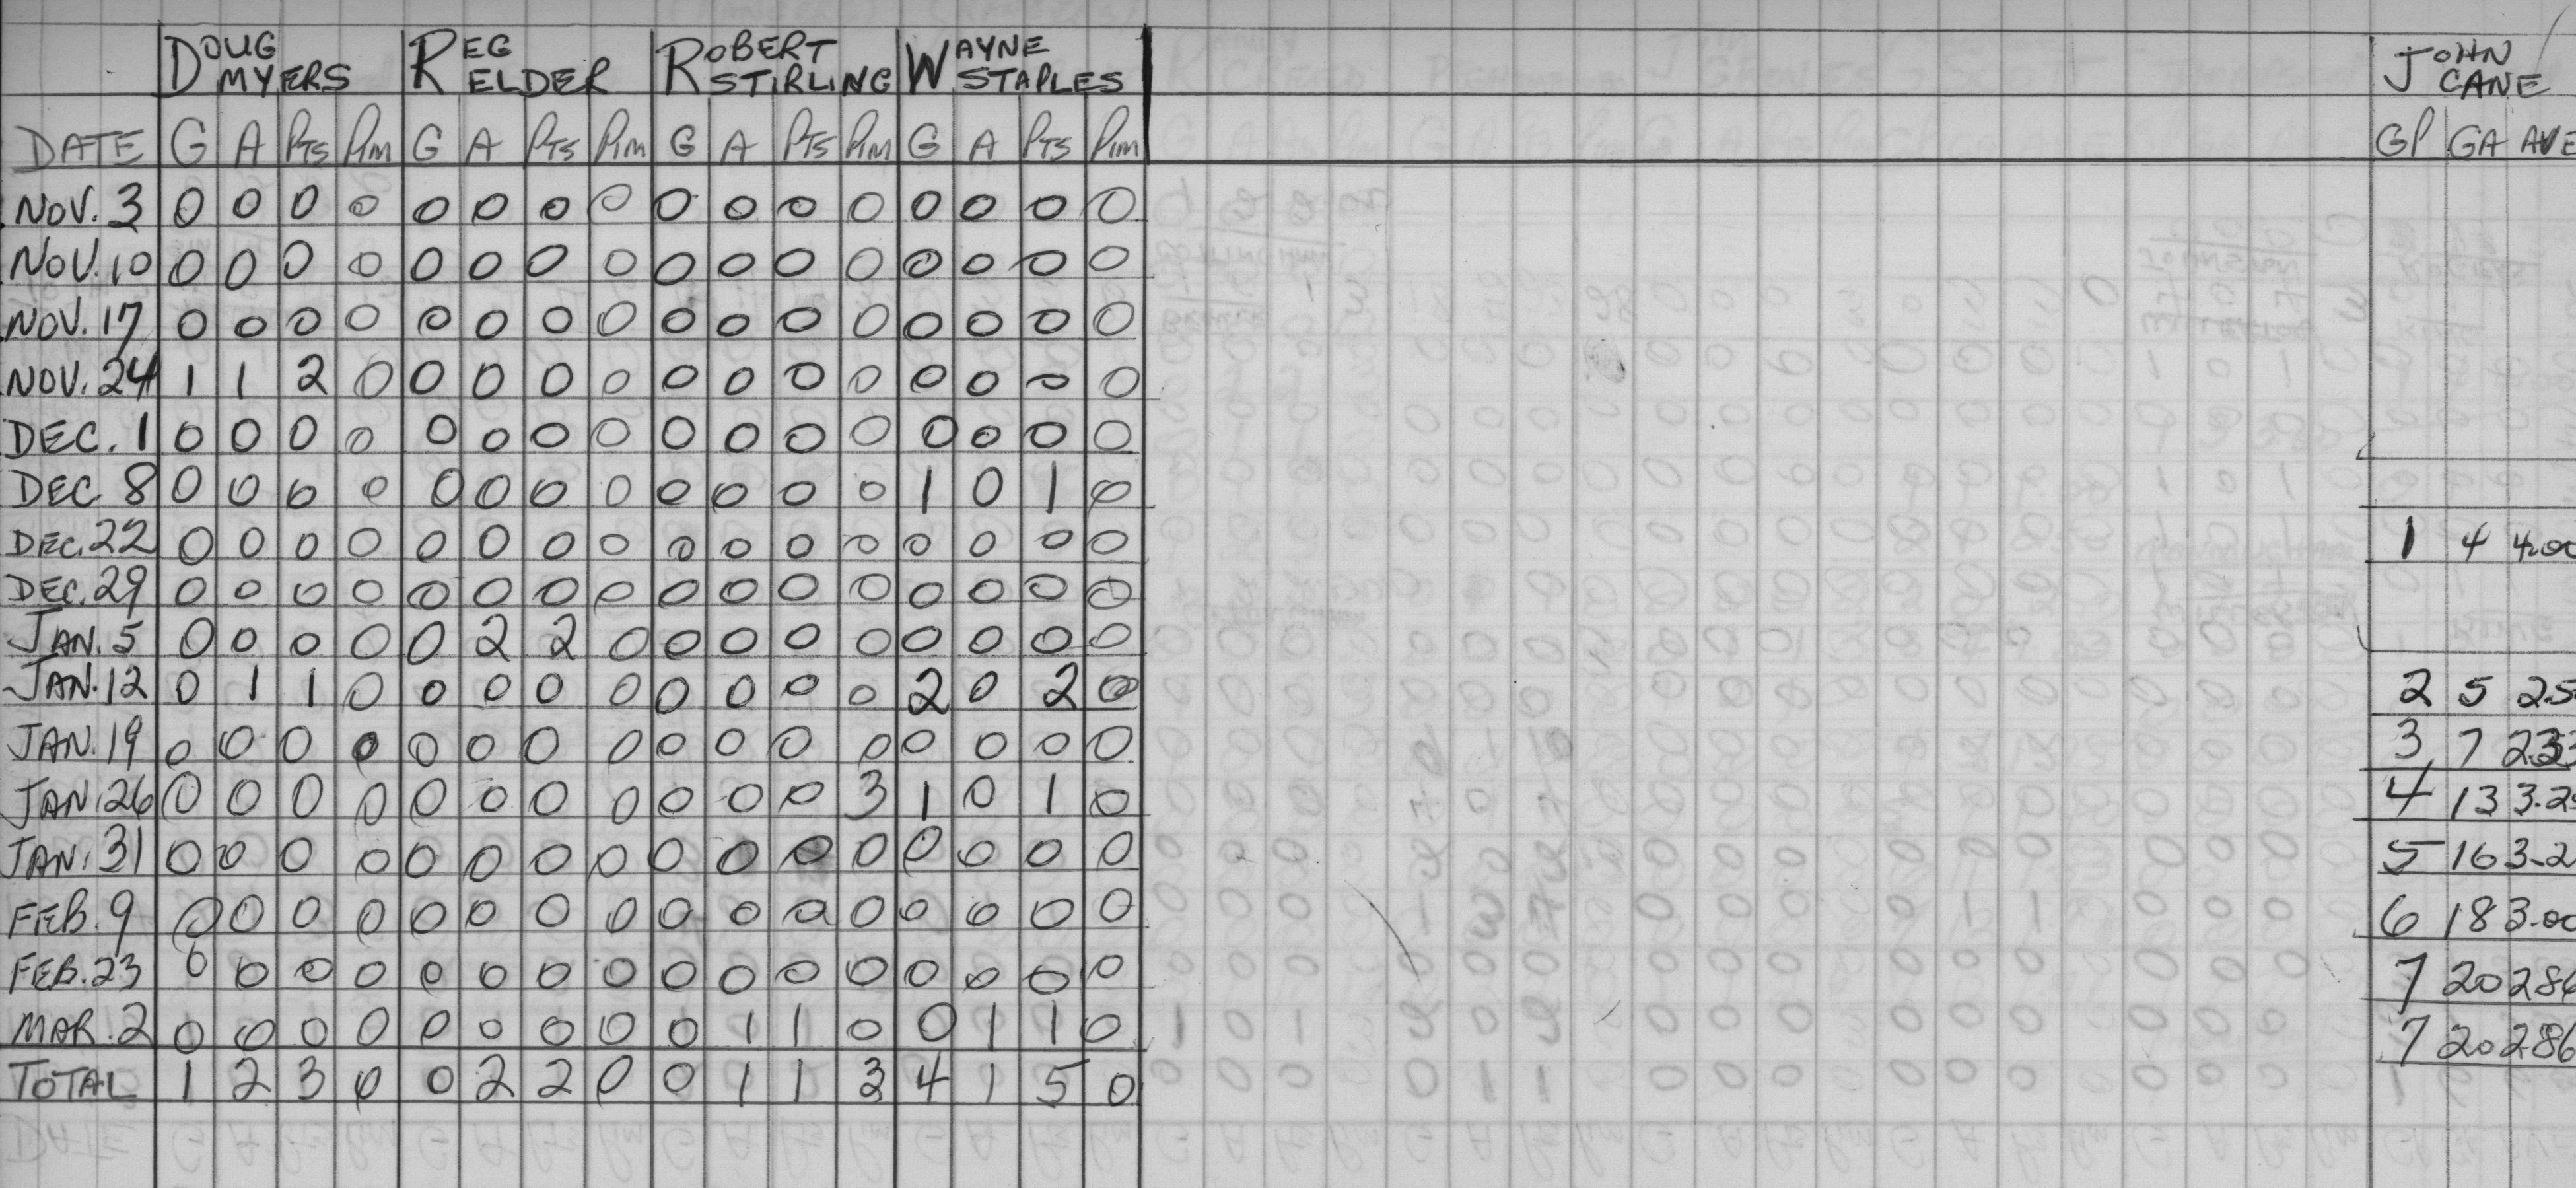 DOUG MYERS REG ELDER ROBERT STIRLING WAYNE STAPLES JOHN CANE
DATE G A PTS PIM G A PTS PIM G A PTS PIM G A PTS PIM GP GA AVE
NOV. 3 0 0 0 0 0 0 0 0 0 0 0 0 0 0 0 0
NOV. 10 0 0 0 0 0 0 0 0 0 0 0 0 0 0 0 0
NOV. 17 0 0 0 0 0 0 0 0 0 0 0 0 0 0 0 0
NOV. 24 1 1 2 0 0 0 0 0 0 0 0 0 0 0 0 0
DEC. 1 0 0 0 0 0 0 0 0 0 0 0 0 0 0 0 0
DEC. 8 0 0 0 0 0 0 0 0 0 0 0 0 1 0 1 0
DEC. 22 0 0 0 0 0 0 0 0 0 0 0 0 0 0 0 0 1 4 4.00
DEC. 29 0 0 0 0 0 0 0 0 0 0 0 0 0 0 0 0
JAN. 5 0 0 0 0 0 2 2 0 0 0 0 0 0 0 0 0
JAN. 12 0 1 1 0 0 0 0 0 0 0 0 0 2 0 2 0 2 5 2.5
JAN. 19 0 0 0 0 0 0 0 0 0 0 0 0 0 0 0 0 3 7 2.33
JAN. 26 0 0 0 0 0 0 0 0 0 0 0 3 1 0 1 0 4 13 3.2
JAN. 31 0 0 0 0 0 0 0 0 0 0 0 0 0 0 0 0 5 16 3.2
FEB. 9 0 0 0 0 0 0 0 0 0 0 0 0 0 0 0 0 6 18 3.00
FEB. 23 0 0 0 0 0 0 0 0 0 0 0 0 0 0 0 0 7 20 286
MAR. 2 0 0 0 0 0 0 0 0 0 1 1 0 0 1 1 0 7 20 286
TOTAL 1 2 3 0 0 2 2 0 0 1 1 3 4 1 5 0